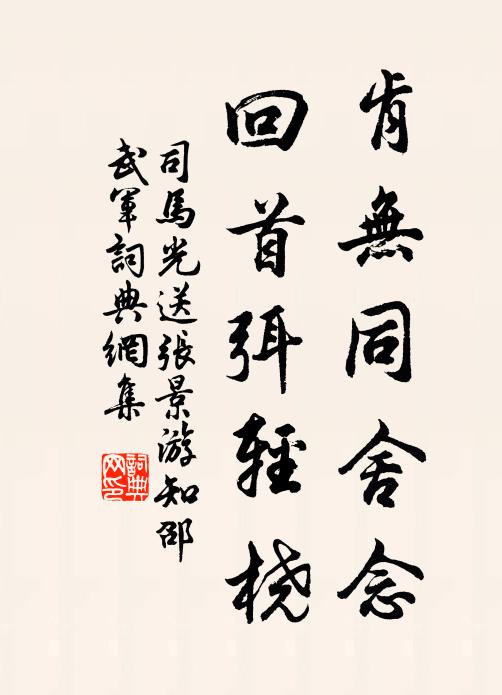 肯無同舍念
回首弭輕橈
司馬光送張景游知邵
武軍詞典網集
詞典
网印